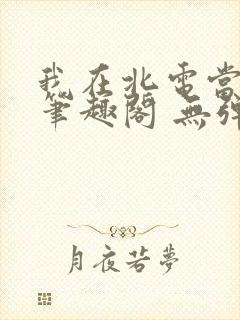 我在北電當
筆趣閣 無彈
月夜若夢